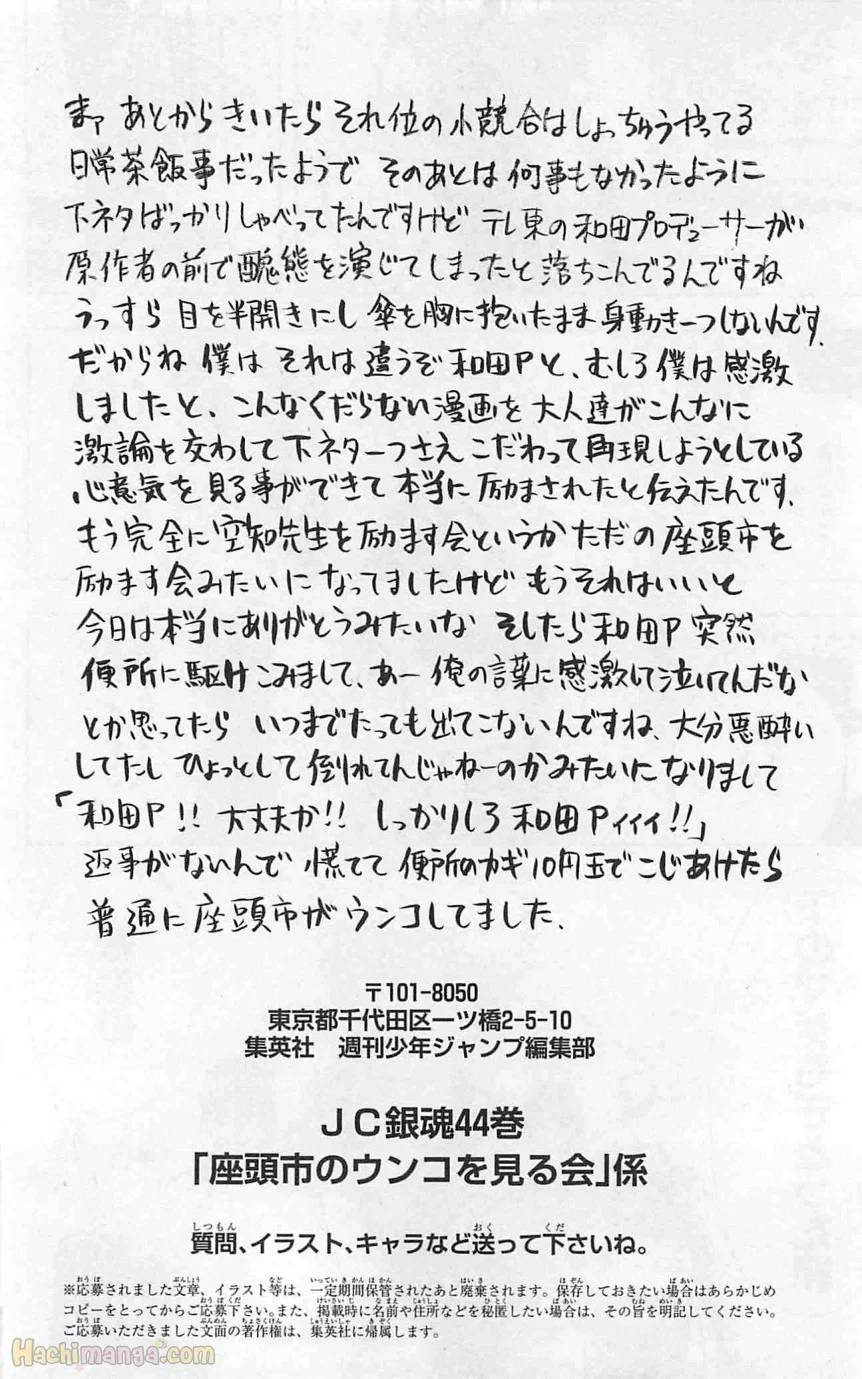 まァ あとからきいたら それ位の小競合はしょっちゅうやってる
日常茶飯事だったようで そのあとは何事もなかったように
下ネタばっかりしゃべってたんですけど テレ東の和田プロデューサーが
原作者の前で醜態を演じてしまったと落ちこんでるんですね
うっすら目を半開きにし傘を胸に抱いたまま身動き一つしないんです。
だからね 僕は それは違うぞ和田Pと、むしろ僕は感激
しましたと、こんなくだらない漫画を大人達がこんなに
激論を交わして下ネタ一つさえこだわって再現しようとしている
心意気を見る事ができて本当に励まされたと伝えたんです、
もう完全に空知先生を励ます会というかただの座頭市を
励ます会みたいになってましたけど もうそれはいいと
今日は本当にありがとうみたいな そしたら和田P突然
便所に駆けこみまして、あー俺の言葉に感激して泣いてんだな
とか思ってたら いつまでたっても出てこないんですね、大分悪酔い
してたし ひょっとして倒れてんじゃねーのかみたいになりまして
「和田P!! 大丈夫か!! しっかりしろ和田Pィィィ!!」
返事がないんで 慌てて便所のカギ10円玉でこじあけたら
普通に座頭市がウンコしてました、
〒101-8050
東京都千代田区一ツ橋2-5-10
集英社 週刊少年ジャンプ編集部
JC銀魂44巻
「座頭市のウンコを見る会」係
しつもん おく くだ
質問、イラスト、キャラなど送って下さいね。
おうぼ ぶんしょう など いっていきかんほかん はいき ほぞん ばあい
※応募されました文章、イラスト等は、一定期間保管されたあと廃棄されます。保存しておきたい場合はあらかじめ
おうぼくだ けいさいじ なまえ じゅうしょ ひとく ばあい むね めいき
コピーをとってからご応募下さい。また、掲載時に名前や住所などを秘匿したい場合は、その旨を明記してください。
おうぼ ぶんめん ちょさくけん しゅうえいしゃ きぞく
ご応募いただきました文面の著作権は、集英社に帰属します。
Hachimanga.com